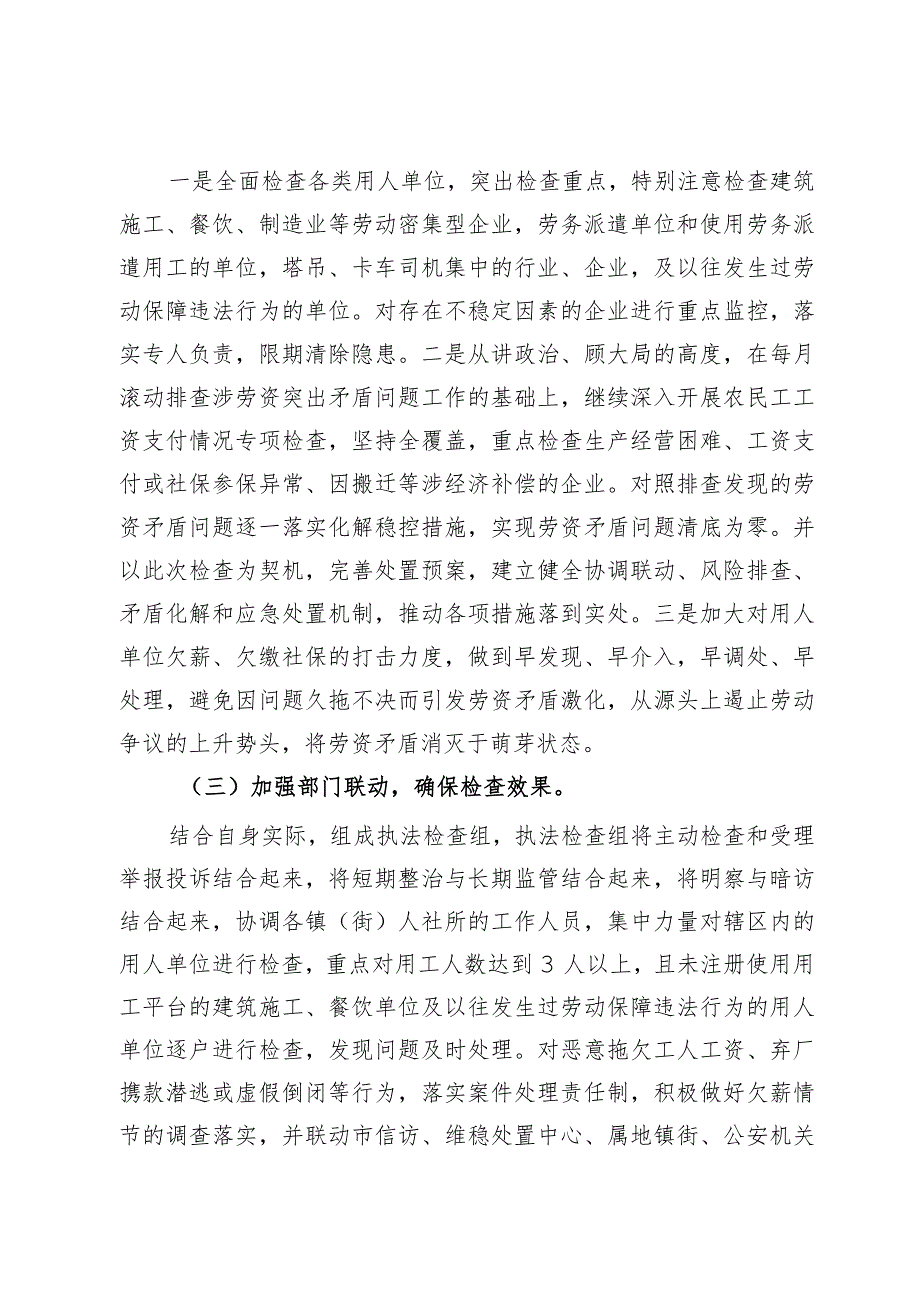 一是全面检查各类用人单位，突出检查重点，特别注意检查建筑
施工、餐饮、制造业等劳动密集型企业，劳务派遣单位和使用劳务派
遣用工的单位，塔吊、卡车司机集中的行业、企业，及以往发生过劳
动保障违法行为的单位。对存在不稳定因素的企业进行重点监控，落
实专人负责，限期清除隐患。二是从讲政治、顾大局的高度，在每月
滚动排查涉劳资突出矛盾问题工作的基础上，继续深入开展农民工工
资支付情况专项检查，坚持全覆盖，重点检查生产经营困难、工资支
付或社保参保异常、因搬迁等涉经济补偿的企业。对照排查发现的劳
资矛盾问题逐一落实化解稳控措施，实现劳资矛盾问题清底为零。并
以此次检查为契机，完善处置预案，建立健全协调联动、风险排查、
矛盾化解和应急处置机制，推动各项措施落到实处。三是加大对用人
单位欠薪、欠缴社保的打击力度，做到早发现、早介入，早调处、早
处理，避免因问题久拖不决而引发劳资矛盾激化，从源头上遏止劳动
争议的上升势头，将劳资矛盾消灭于萌芽状态。
（三）加强部门联动，确保检查效果。
结合自身实际，组成执法检查组，执法检查组将主动检查和受理
举报投诉结合起来，将短期整治与长期监管结合起来，将明察与暗访
结合起来，协调各镇（街）人社所的工作人员，集中力量对辖区内的
用人单位进行检查，重点对用工人数达到 3 人以上，且未注册使用用
工平台的建筑施工、餐饮单位及以往发生过劳动保障违法行为的用人
单位逐户进行检查，发现问题及时处理。对恶意拖欠工人工资、弃厂
携款潜逃或虚假倒闭等行为，落实案件处理责任制，积极做好欠薪情
节的调查落实，并联动市信访、维稳处置中心、属地镇街、公安机关